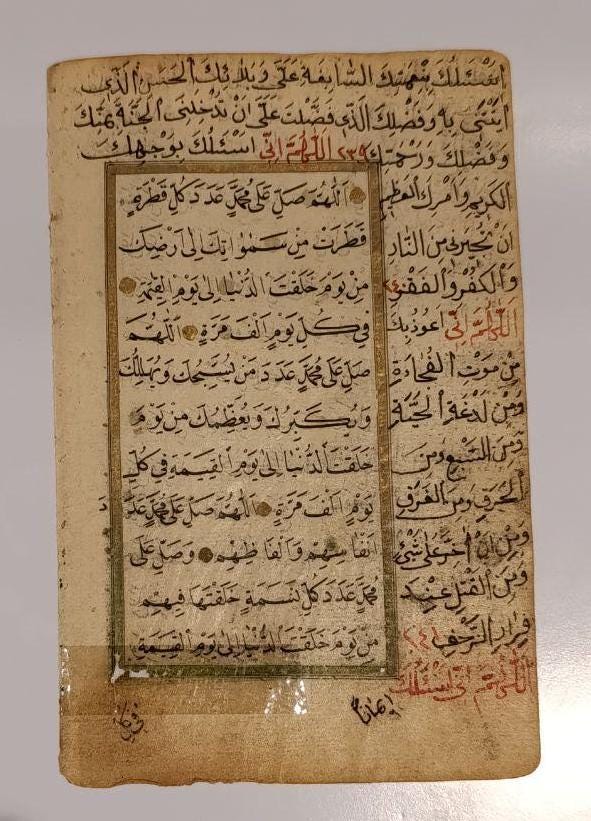 اسئلك بنعمتك السابغة علىّ وبلائك الحسن الذى
ابتليتنى به وفضلك الذى فضلت علىّ ان تدخلنى الجنة بمنك
وفضلك ورحمتك ٢٣٩ اللهم انى اسئلك بوجهك
الكريم وامرك العظيم
ان تجيرنى من النار
والكفر والفقر ٢٤٠
اللهم انى اعوذ بك
من موت الفجاءة
ومن لدغة الحية
ومن السبع ومن
الحرق ومن الغرق
ومن ان اخر على شئ
ومن القتل عند
فرار الزحف ٢٤١
اللهم انى اسئلك
اللهم صل على محمد عدد كل قطرة
قطرت من سمواتك الى ارضك
من يوم خلقت الدنيا الى يوم القيمة
فى كل يوم الف مرة اللهم
صل على محمد عدد من يسبحك ويهللك
ويكبرك ويعظمك من يوم
خلقت الدنيا الى يوم القيمة فى كل
يوم الف مرة اللهم صل على محمد عدد
انفاسهم والفاظهم وصل على
محمد عدد كل نسمة خلقتها فيهم
من يوم خلقت الدنيا الى يوم القيمة
ايمانا
فى كل